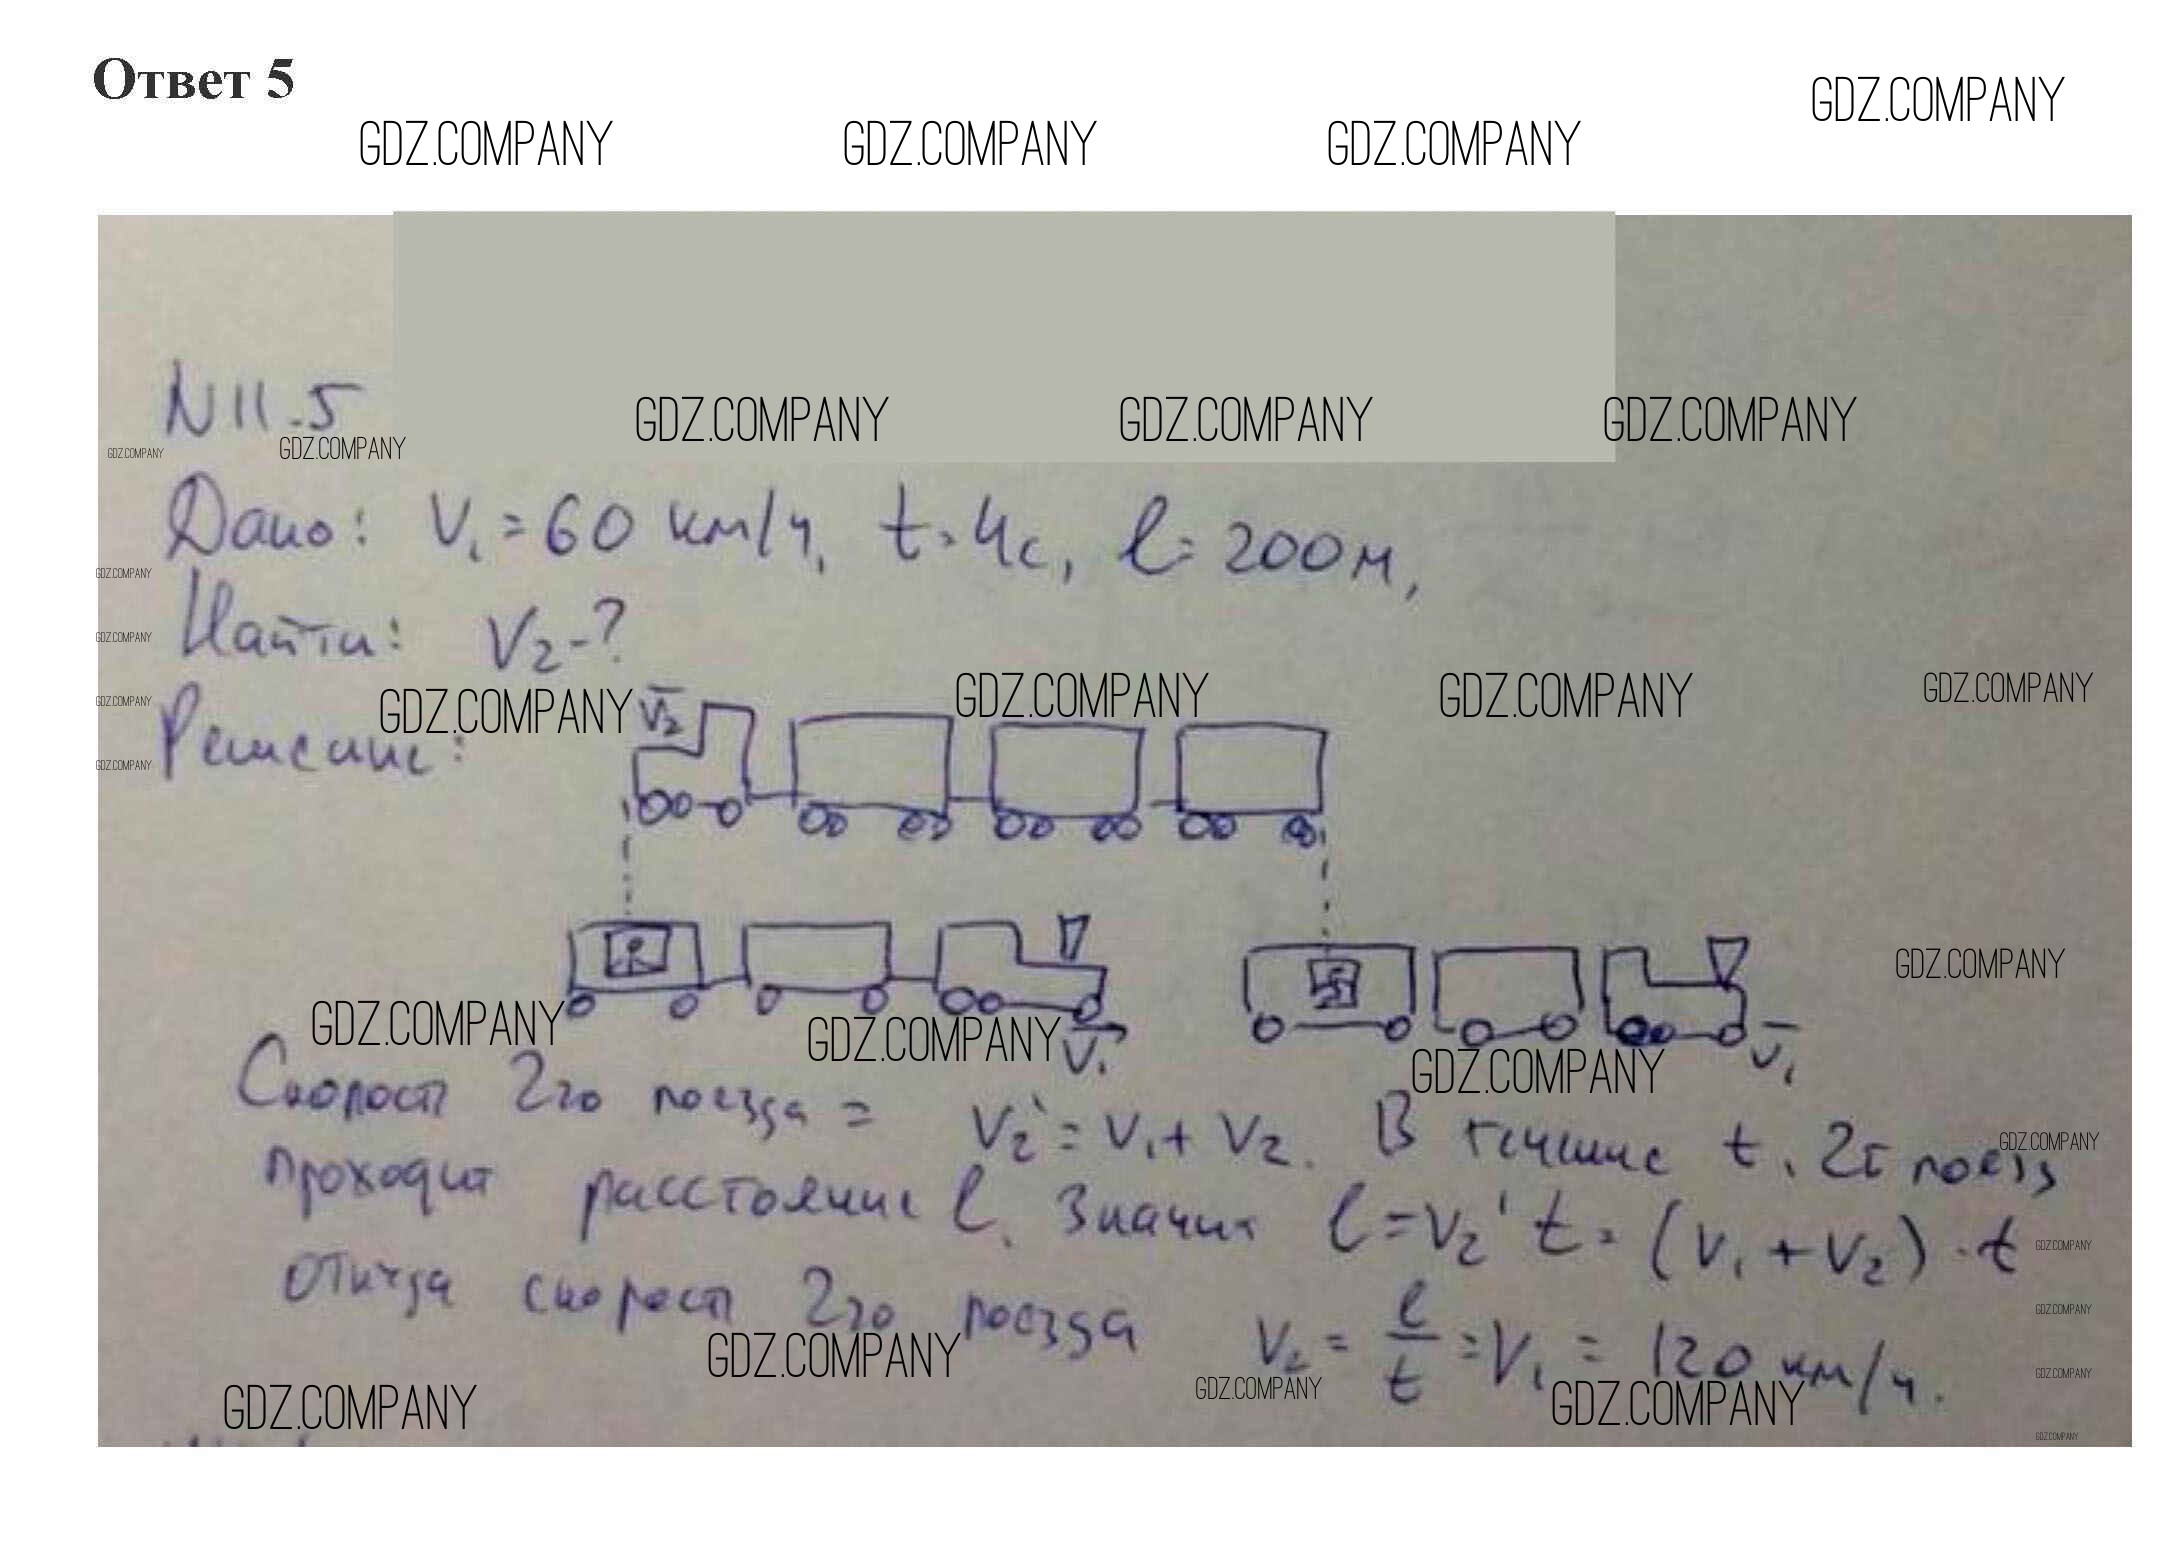 Ответ 5
GDZ.COMPANY
GDZ.COMPANY GDZ.COMPANY GDZ.COMPANY
N11-5
GDZ.COMPANY GDZ.COMPANY GDZ.COMPANY
GDZ.COMPANY GDZ.COMPANY
Дано: V₁ = 60 км/ч, t = 4с, l = 200м,
GDZ.COMPANY
Найти: V₂ - ?
GDZ.COMPANY
GDZ.COMPANY GDZ.COMPANY V₂ GDZ.COMPANY GDZ.COMPANY GDZ.COMPANY
Решение:
GDZ.COMPANY
GDZ.COMPANY
GDZ.COMPANY GDZ.COMPANY V₁ GDZ.COMPANY V₁
Скорость 2го поезда = V₂' = V₁ + V₂. В течение t, 2й поезд
GDZ.COMPANY
проходит расстояние l. Значит l = V₂' t = (V₁ + V₂) · t
GDZ.COMPANY
откуда скорость 2го поезда V₂ = l/t = V₁ = 120 км/ч.
GDZ.COMPANY
GDZ.COMPANY GDZ.COMPANY GDZ.COMPANY
GDZ.COMPANY GDZ.COMPANY
GDZ.COMPANY